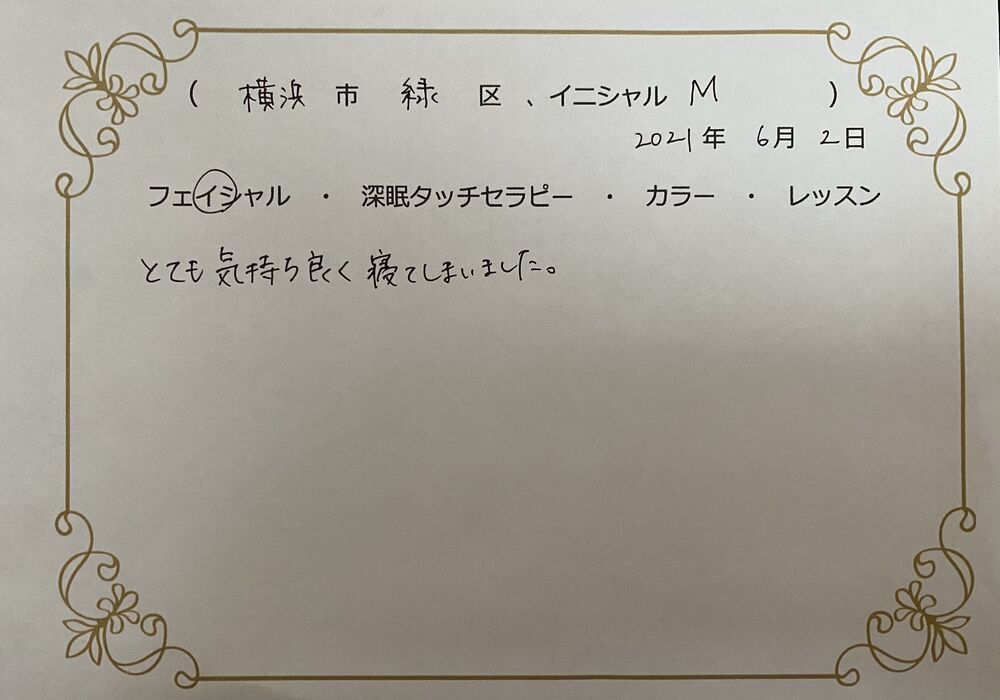 ( 横浜 市 緑 区 、イニシャル M )
2021年 6月 2日
フェイシャル ・ 深眠タッチセラピー ・ カラー ・ レッスン
とても気持ち良く寝てしまいました。